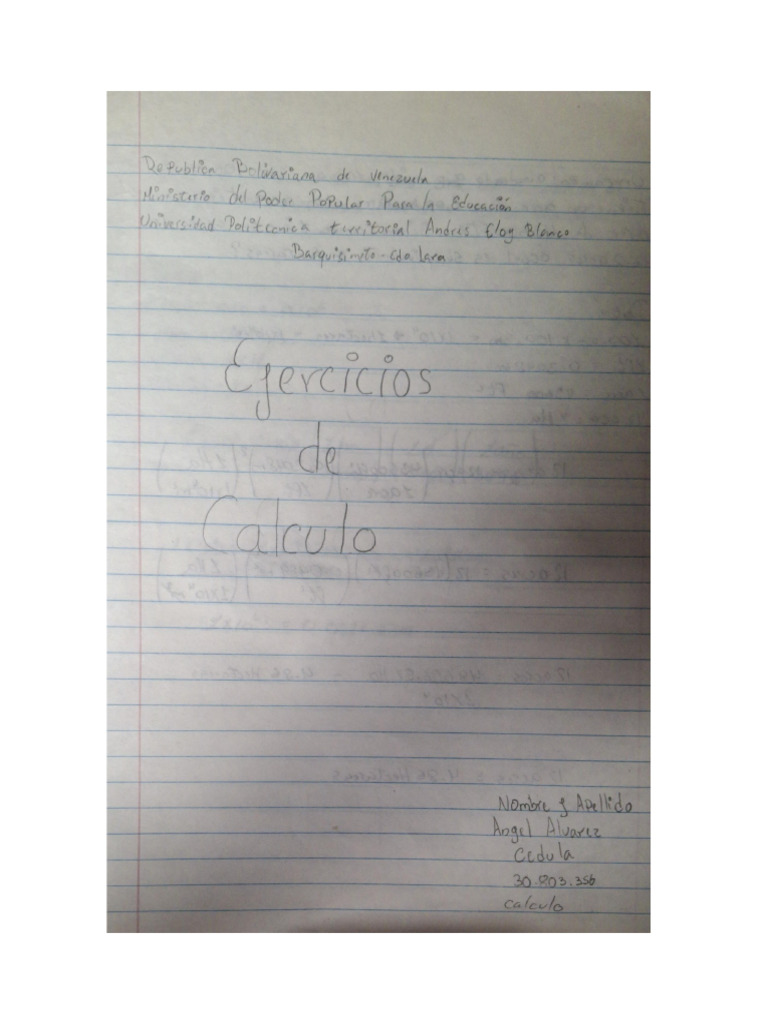 Republica Bolivariana de Venezuela
Ministerio del Poder Popular Para la Educación
Universidad Politecnica territorial Andres Eloy Blanco
Barquisimeto - Edo Lara
Ejercicios
de
Calculo
Nombre y Apellido
Angel Alvarez
Cedula
30.903.356
calculo